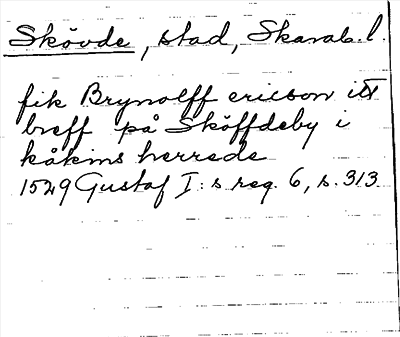 Skövde, stad, Skarab. l.
fik Brynolff ericson itt
breff på Sköffdeby i
kåkins herrede
1529 Gustaf I:s reg. 6, s. 313